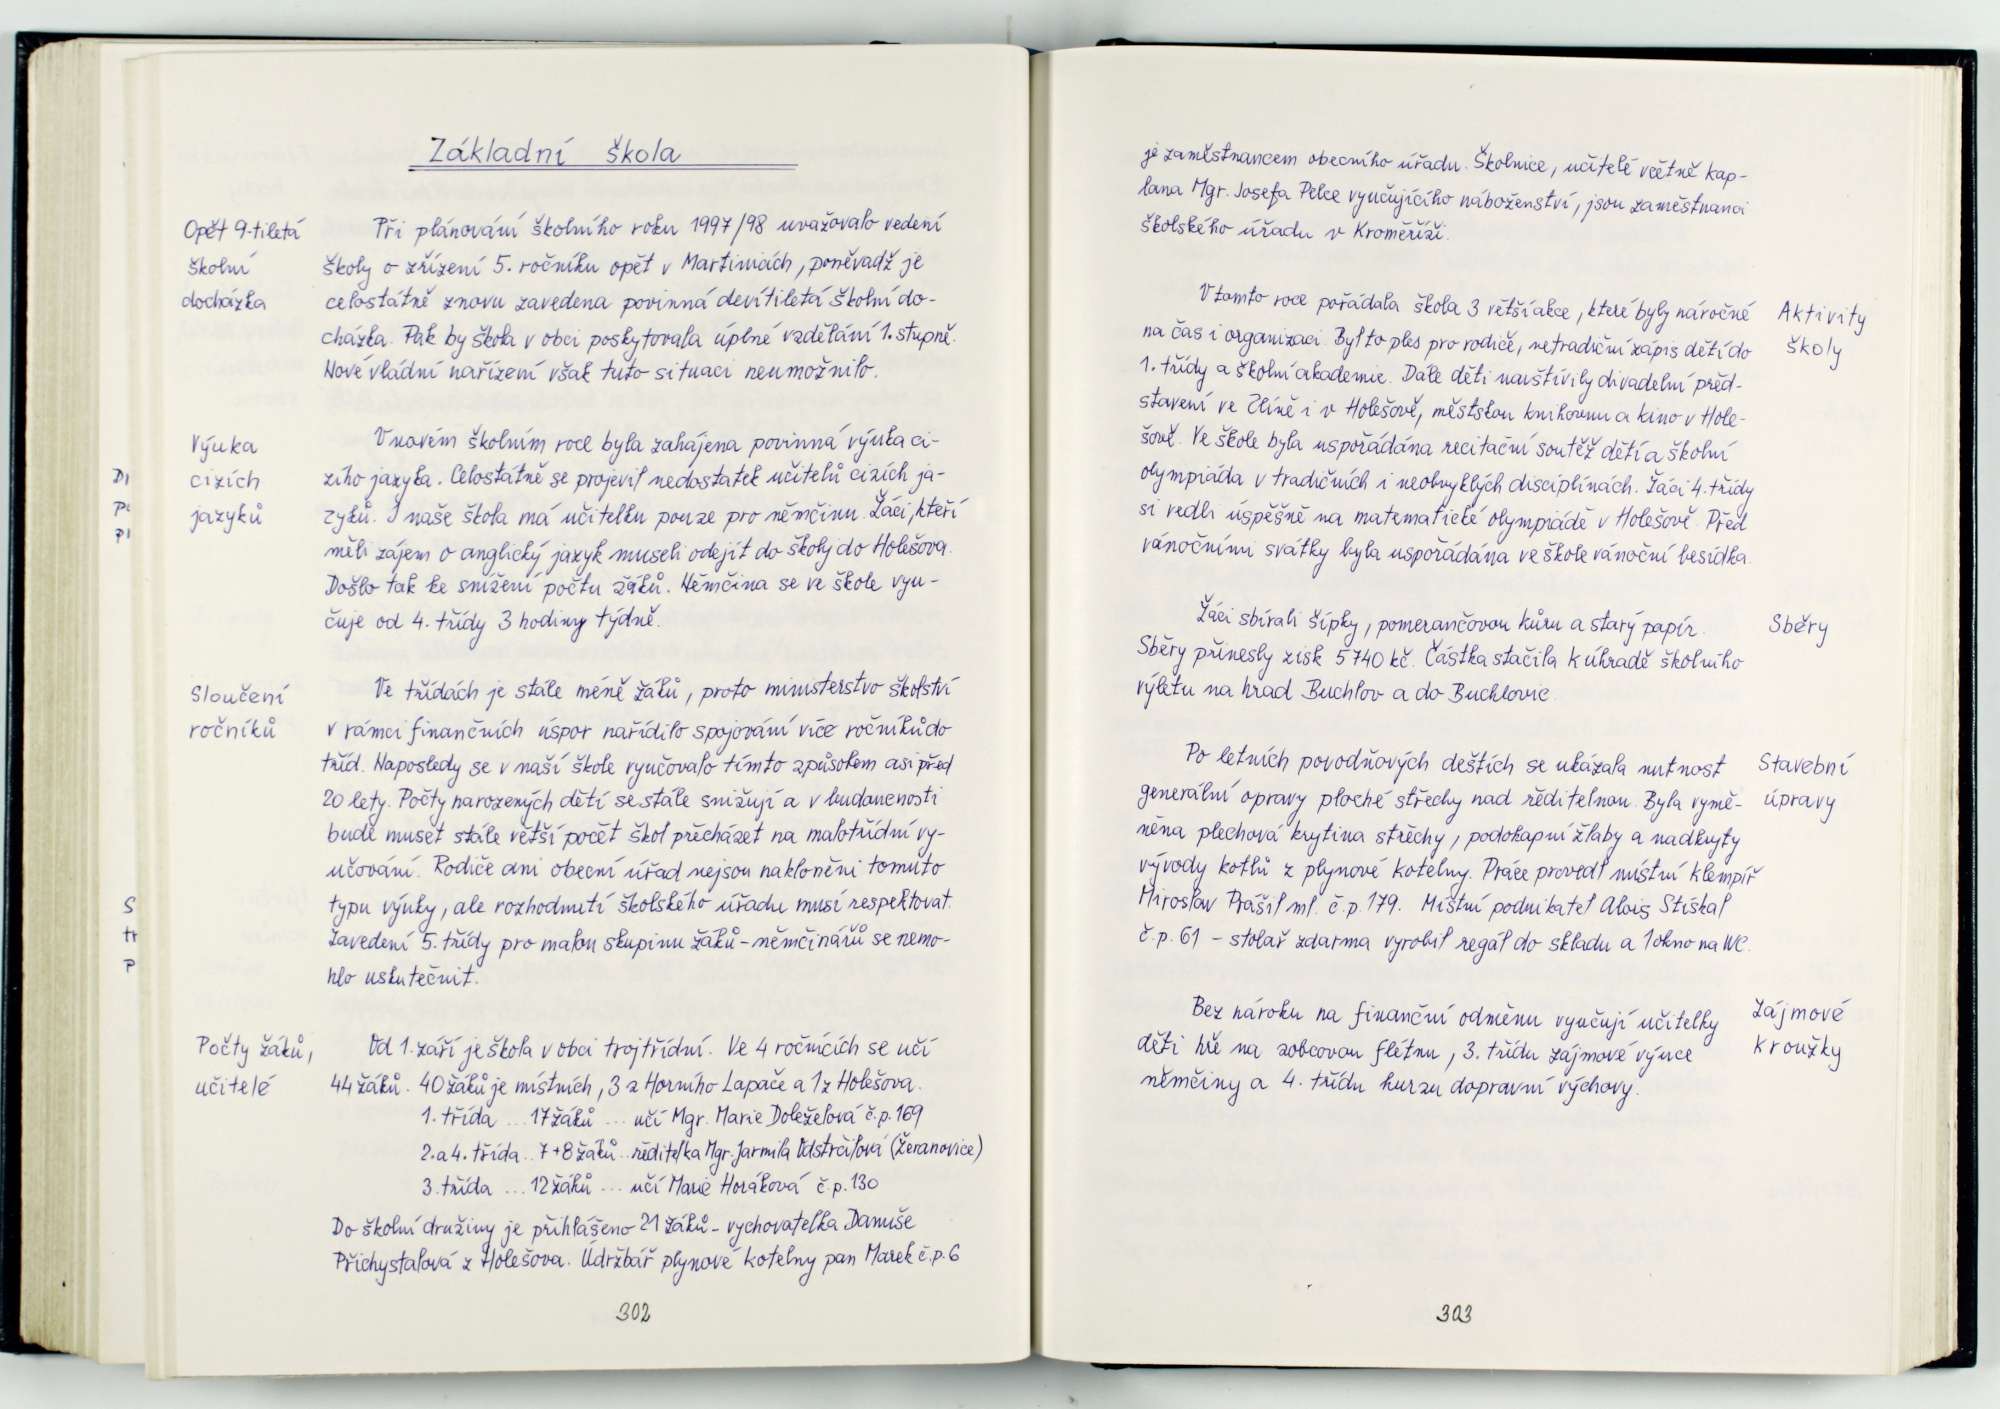 Základní škola
Opět 9-tiletá
školní
docházka
Při plánování školního roku 1997/98 uvažovalo vedení
školy o zřízení 5. ročníku opět v Martinicích, poněvadž je
celostátně znovu zavedena povinná devítiletá školní do-
cházka. Pak by škola v obci poskytovala úplné vzdělání 1. stupně.
Nové vládní nařízení však tuto situaci neumožnilo.
Výuka
cizích
jazyků
V novém školním roce byla zahájena povinná výuka ci-
zího jazyka. Celostátně se projevil nedostatek učitelů cizích ja-
zyků. I naše škola má učitelku pouze pro němčinu. Žáci, kteří
měli zájem o anglický jazyk museli odejít do školy do Holešova.
Došlo tak ke snížení počtu žáků. Němčina se ve škole vyu-
čuje od 4. třídy 3 hodiny týdně.
Sloučení
ročníků
Ve třídách je stále méně žáků, proto ministerstvo školství
v rámci finančních úspor nařídilo spojování více ročníků do
tříd. Naposledy se v naší škole vyučovalo tímto způsobem asi před
20 lety. Počty narozených dětí se stále snižují a v budoucnosti
bude muset stále větší počet škol přecházet na malotřídní vy-
učování. Rodiče ani obecní úřad nejsou nakloněni tomuto
typu výuky, ale rozhodnutí školského úřadu musí respektovat.
Zavedení 5. třídy pro malou skupinu žáků - němčinářů se nemo-
hlo uskutečnit.
Počty žáků,
učitelé
Od 1. září je škola v obci trojtřídní. Ve 4 ročnících se učí
44 žáků. 40 žáků je místních, 3 z Horního Lapače a 1 z Holešova.
1. třída ... 17 žáků ... učí Mgr. Marie Doleželová č.p. 169
2. a 4. třída .. 7+8 žáků .. ředitelka Mgr. Jarmila Odstrčilová (Žeranovice)
3. třída ... 12 žáků ... učí Marie Horáková č.p. 130
Do školní družiny je přihlášeno 21 žáků - vychovatelka Danuše
Přichystalová z Holešova. Údržbář plynové kotelny pan Marek č.p. 6
302
je zaměstnancem obecního úřadu. Školnice, učitelé včetně kap-
lana Mgr. Josefa Pelce vyučujícího náboženství, jsou zaměstnanci
školského úřadu v Kroměříži.
Aktivity
školy
V tomto roce pořádala škola 3 větší akce, které byly náročné
na čas i organizaci. Byl to ples pro rodiče, netradiční zápis dětí do
1. třídy a školní akademie. Dále děti navštívily divadelní před-
stavení ve Zlíně i v Holešově, městskou knihovnu a kino v Hole-
šově. Ve škole byla uspořádána recitační soutěž dětí a školní
olympiáda v tradičních i neobvyklých disciplínách. Žáci 4. třídy
si vedli úspěšně na matematické olympiádě v Holešově. Před
vánočními svátky byla uspořádána ve škole vánoční besídka.
Sběry
Žáci sbírali šípky, pomerančovou kůru a starý papír.
Sběry přinesly zisk 5740 kč. Částka stačila k úhradě školního
výletu na hrad Buchlov a do Buchlovic.
Stavební
úpravy
Po letních povodňových deštích se ukázala nutnost
generální opravy ploché střechy nad ředitelnou. Byla vymě-
něna plechová krytina střechy, podokapní žlaby a nadkryty
vývody kotlů z plynové kotelny. Práce provedl místní klempíř
Miroslav Prášil ml. č.p. 179. Místní podnikatel Alois Stiskal
č.p. 61 - stolař zdarma vyrobil regál do skladu a 1 okno na WC.
Zájmové
kroužky
Bez nároku na finanční odměnu vyučují učitelky
děti hře na zobcovou flétnu, 3. třídu zájmové výuce
němčiny a 4. třídu kurzu dopravní výchovy.
303